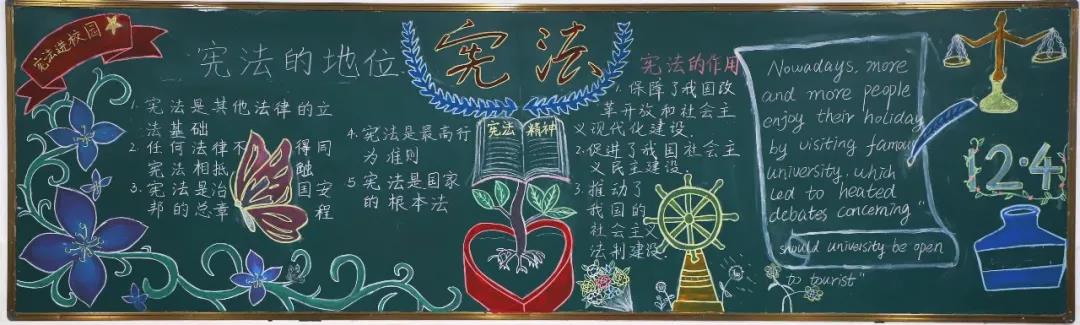 宪法进校园
宪法的地位
1. 宪法是其他法律的立
法基础
2. 任何法律不 得同
宪法相抵 触
3. 宪法是治 国安
邦的总章 程
4. 宪法是最高行
为准则
5. 宪法是国家
的根本法
宪法
宪法 精神
宪法的作用
1. 保障了我国改
革开放和社会主
义现代化建设.
2. 促进了我国社会主
义民主建设.
3. 推动了
我国的
社会主义
法制建设.
Nowadays, more
and more people
enjoy their holiday
by visiting famous
university, which
led to heated
debates concerning "
should university be open
to tourist"
12·4